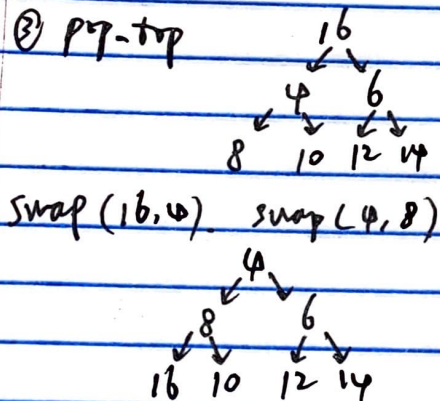 ③ pop-top 16
4 6
8 10 12 14
swap (16,4). swap (4,8)
4
8 6
16 10 12 14